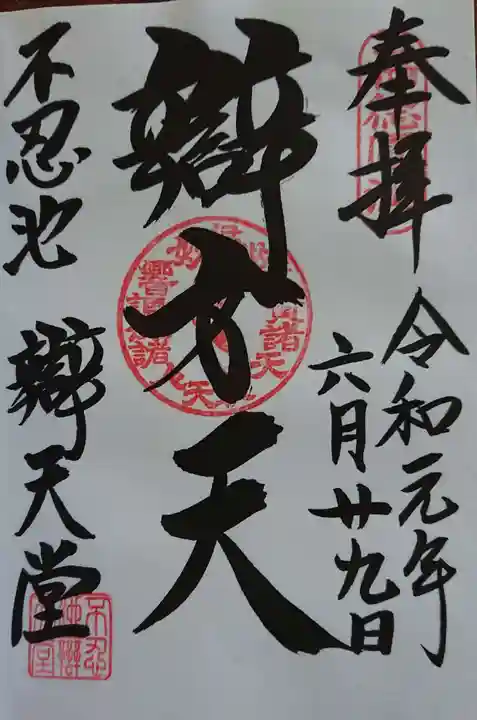 奉拝
令和元年
六月廿九日
辯才天
不忍池 辯天堂